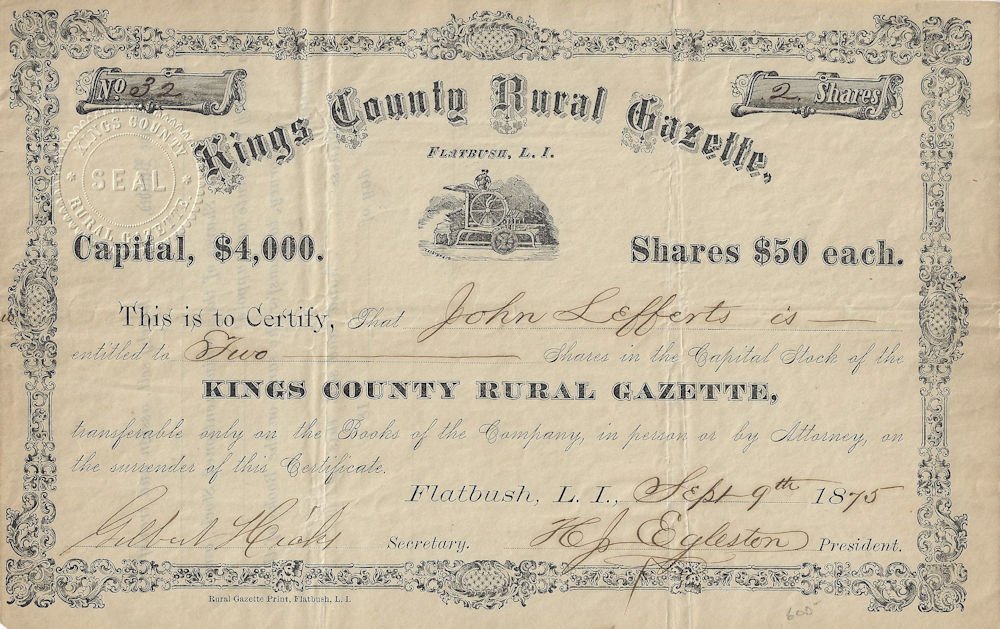 No 32
2 Shares
Kings County Rural Gazette,
FLATBUSH, L. I.
KINGS COUNTY
SEAL
RURAL GAZETTE.
Capital, $4,000.
Shares $50 each.
This is to Certify, That John Lefferts is
entitled to Two Shares in the Capital Stock of the
KINGS COUNTY RURAL GAZETTE,
transferable only on the Books of the Company, in person or by Attorney, on
the surrender of this Certificate.
Flatbush, L. I., Sept 9th 1875
Gilbert Hicks Secretary. H J Egleston President.
Rural Gazette Print, Flatbush, L. I.